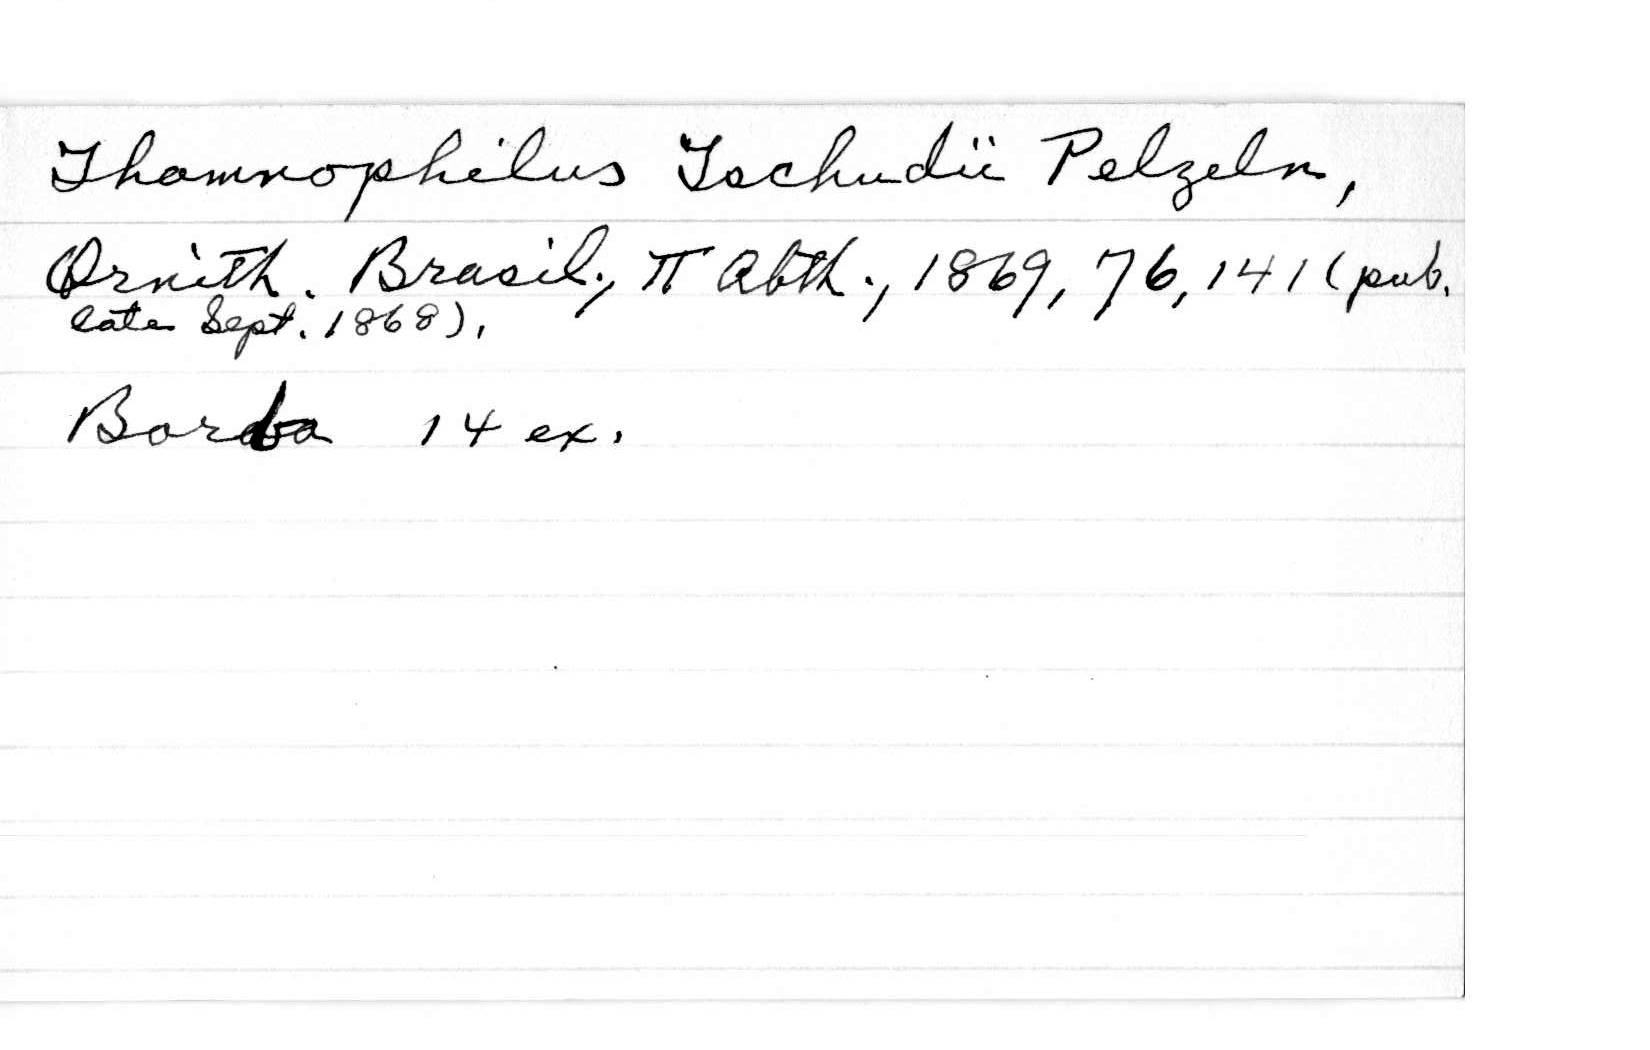 Thamnophilus Tschudii Pelzeln,
Ornith. Brasil., II Abth., 1869, 76, 141 (pub.
late Sept. 1868).
Borba 14 ex.